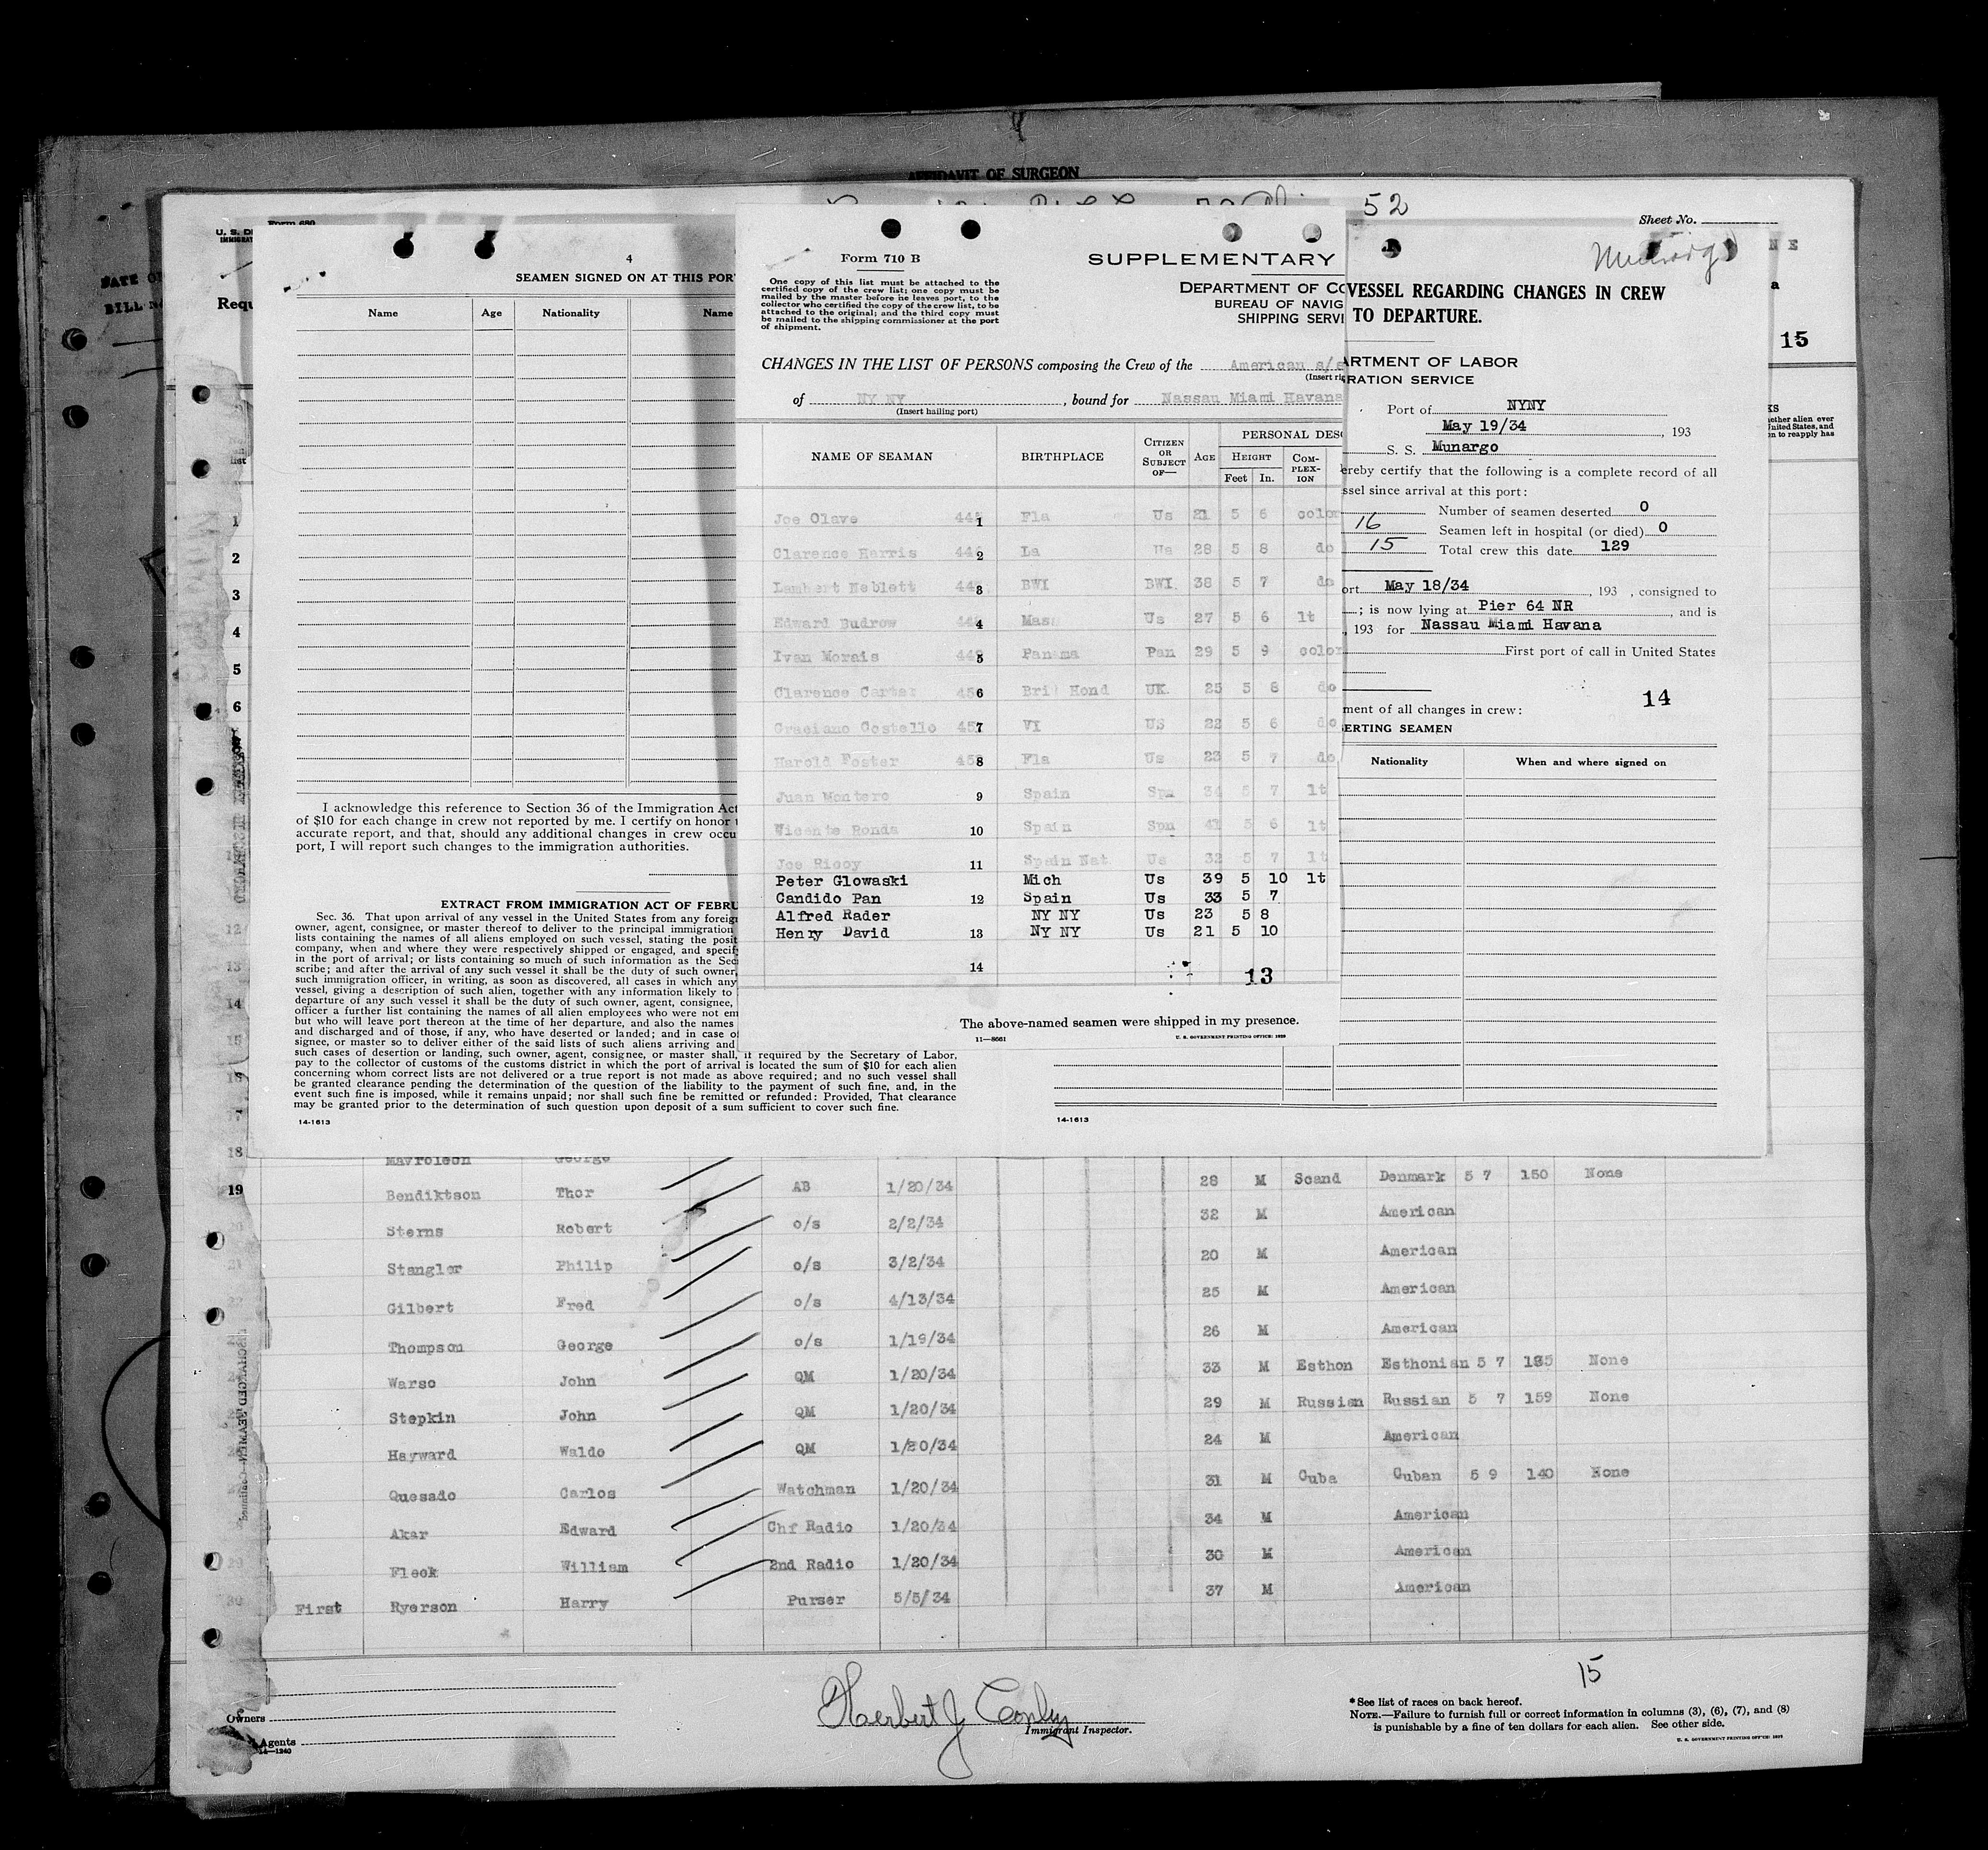 AFFIDAVIT OF SURGEON
52
Sheet No.
Form 680
Munargo
15
4
SEAMEN SIGNED ON AT THIS POR
Name Age Nationality Name
I acknowledge this reference to Section 36 of the Immigration Act
of $10 for each change in crew not reported by me. I certify on honor
accurate report, and that, should any additional changes in crew occu
port, I will report such changes to the immigration authorities.
EXTRACT FROM IMMIGRATION ACT OF FEBRU
Sec. 36. That upon arrival of any vessel in the United States from any foreig
owner, agent, consignee, or master thereof to deliver to the principal immigration
lists containing the names of all aliens employed on such vessel, stating the posit
company, when and where they were respectively shipped or engaged, and specif
in the port of arrival; or lists containing so much of such information as the Sec
scribe; and after the arrival of any such vessel it shall be the duty of such owner,
such immigration officer, in writing, as soon as discovered, all cases in which any
vessel, giving a description of such alien, together with any information likely to
departure of any such vessel it shall be the duty of such owner, agent, consignee,
officer a further list containing the names of all alien employees who were not em
but who will leave port thereon at the time of her departure, and also the names
and discharged and of those, if any, who have deserted or landed; and in case o
signee, or master so to deliver either of the said lists of such aliens arriving and
such cases of desertion or landing, such owner, agent, consignee, or master shall, if required by the Secretary of Labor,
pay to the collector of customs of the customs district in which the port of arrival is located the sum of $10 for each alien
concerning whom correct lists are not delivered or a true report is not made as above required; and no such vessel shall
be granted clearance pending the determination of the question of the liability to the payment of such fine, and, in the
event such fine is imposed, while it remains unpaid; nor shall such fine be remitted or refunded: Provided, That clearance
may be granted prior to the determination of such question upon deposit of a sum sufficient to cover such fine.
14-1613
14-1613
Form 710 B
One copy of this list must be attached to the
certified copy of the crew list; one copy must be
mailed by the master before he leaves port, to the
collector who certified the copy of the crew list, to be
attached to the original; and the third copy must
be mailed to the shipping commissioner at the port
of shipment.
SUPPLEMENTARY
DEPARTMENT OF CO
BUREAU OF NAVIG
SHIPPING SERVI
CHANGES IN THE LIST OF PERSONS composing the Crew of the American s/s
(Insert ri
of NY NY , bound for Nassau Miami Havana
(Insert hailing port)
NAME OF SEAMAN BIRTHPLACE CITIZEN OR SUBJECT OF— AGE PERSONAL DES
HEIGHT COMPLEXION
Feet In.
Joe Olave 1 Fla Us 21 5 6 color
Clarence Harris 2 La Us 28 5 8 do
Lambert Neblett 3 BWI BWI. 38 5 7 do
Edward Budrow 4 Mas Us 27 5 6 lt
Ivan Morais 5 Panama Pan 29 5 9 color
Clarence Carter 6 Bri Hond UK. 25 5 8 do
Graciano Costello 7 VI US 22 5 6 do
Harold Foster 8 Fla Us 23 5 7 do
Juan Montero 9 Spain Spn 34 5 7 lt
Vicente Ronda 10 Spain Spn 41 5 6 lt
Joe Ricoy 11 Spain Nat Us 32 5 7 lt
Peter Glowaski Mich Us 39 5 10 lt
Candido Pan 12 Spain Us 33 5 7
Alfred Rader NY NY Us 23 5 8
Henry David 13 NY NY Us 21 5 10
14
13
The above-named seamen were shipped in my presence.
11—8661 U. S. GOVERNMENT PRINTING OFFICE: 1929
VESSEL REGARDING CHANGES IN CREW
TO DEPARTURE.
ARTMENT OF LABOR
GRATION SERVICE
Port of NYNY
May 19/34 , 193
S. S. Munargo
ereby certify that the following is a complete record of all
ssel since arrival at this port:
Number of seamen deserted 0
16 Seamen left in hospital (or died) 0
15 Total crew this date 129
ort May 18/34 , 193 , consigned to
; is now lying at Pier 64 NR , and is
, 193 for Nassau Miami Havana
First port of call in United States
14
ment of all changes in crew:
ERTING SEAMEN
Nationality When and where signed on
18 Mavroleon George
19 Bendiktson Thor AB 1/20/34 28 M Scand Denmark 5 7 150 None
20 Sterns Robert o/s 2/2/34 32 M American
21 Stangler Philip o/s 3/2/34 20 M American
22 Gilbert Fred o/s 4/13/34 25 M American
Thompson George o/s 1/19/34 26 M American
Warso John QM 1/20/34 33 M Esthon Esthonian 5 7 135 None
Stepkin John QM 1/20/34 29 M Russian Russian 5 7 159 None
Hayward Waldo QM 1/20/34 24 M American
Quesado Carlos Watchman 1/20/34 31 M Cuba Cuban 5 9 140 None
Akar Edward Chf Radio 1/20/34 34 M American
Fleck William 2nd Radio 1/20/34 30 M American
30 First Ryerson Harry Purser 5/5/34 37 M American
15
Owners
Agents
14—1240
Herbert J Conly
Immigrant Inspector.
*See list of races on back hereof.
NOTE.—Failure to furnish full or correct information in columns (3), (6), (7), and (8)
is punishable by a fine of ten dollars for each alien. See other side.
U. S. GOVERNMENT PRINTING OFFICE: 1932